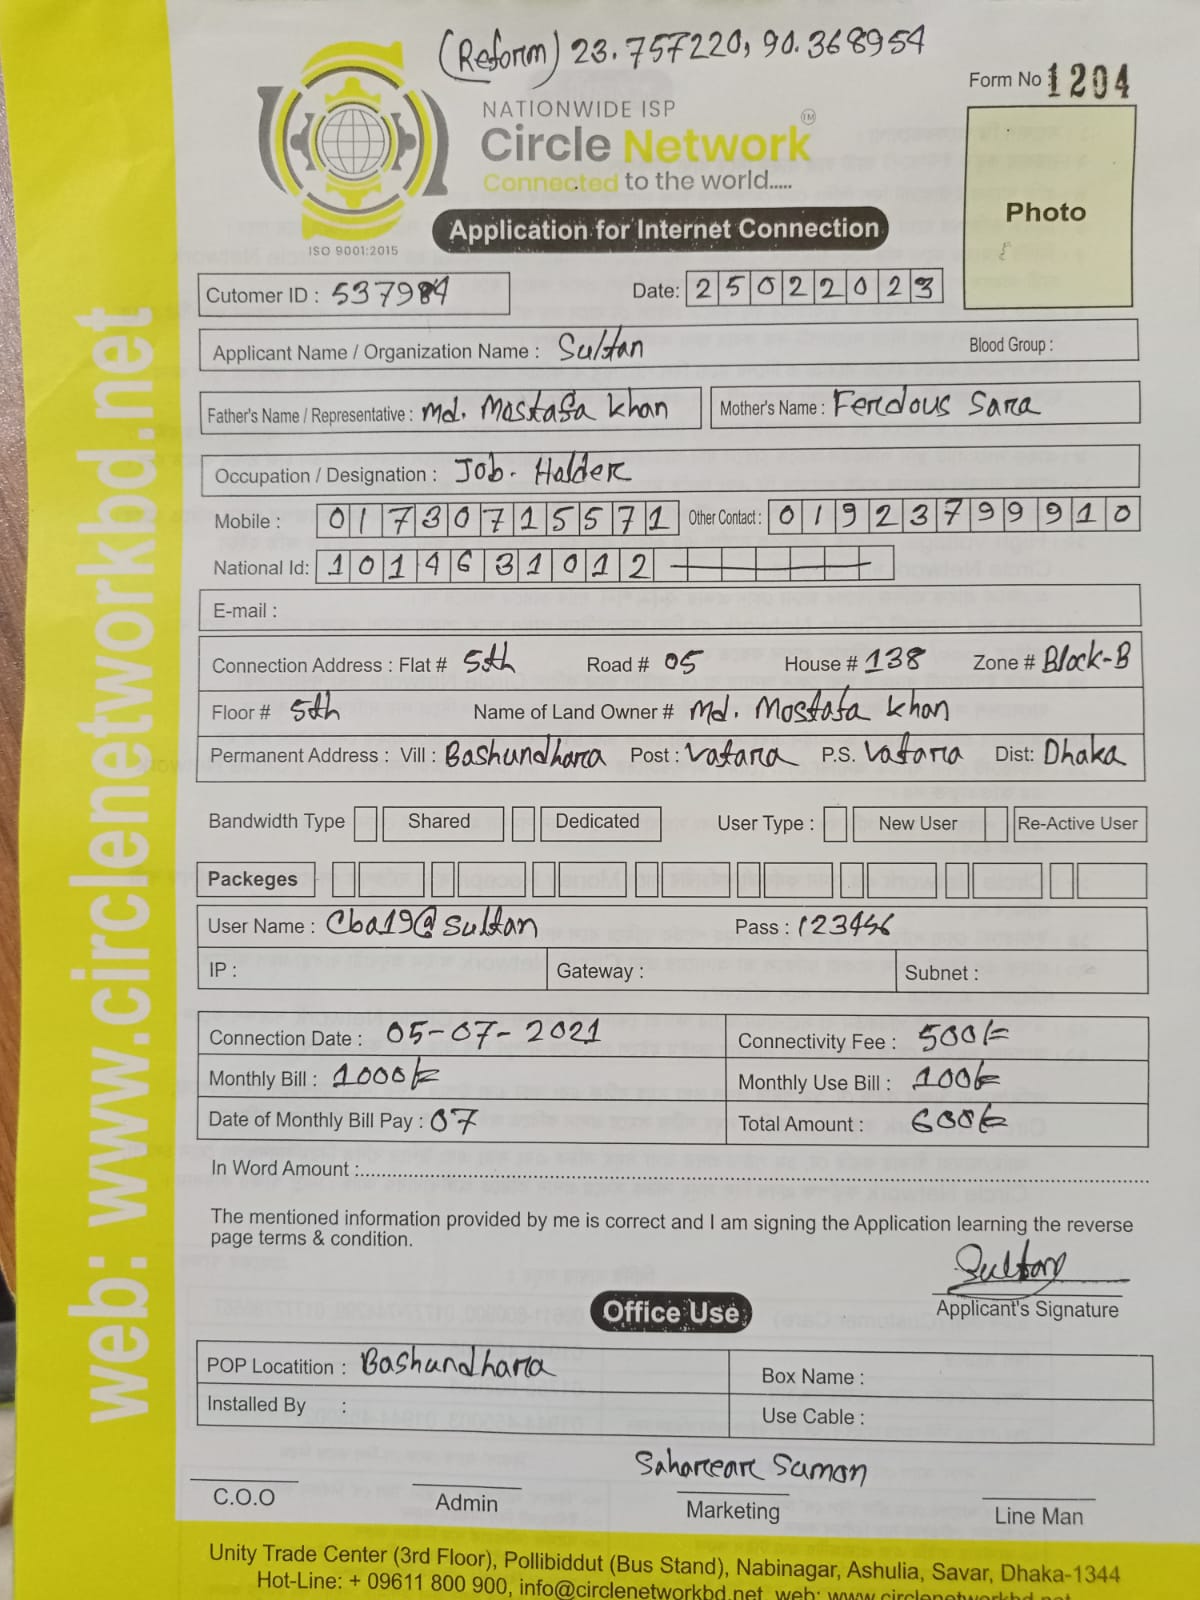 (Reform) 23.757220, 90.368954
Form No 1204
NATIONWIDE ISP
Circle Network TM
Connected to the world.....
ISO 9001:2015
Application for Internet Connection
Photo
Cutomer ID : 537984 Date: 25022023
Applicant Name / Organization Name : Sultan Blood Group :
Father's Name / Representative : md. Mostafa khan Mother's Name : Ferdous Sara
Occupation / Designation : Job. Holder
Mobile : 01730715571 Other Contact : 01923799910
National Id: 1014631012
E-mail :
Connection Address : Flat # 5th Road # 05 House # 138 Zone # Block-B
Floor # 5th Name of Land Owner # md. Mostafa khan
Permanent Address : Vill : Bashundhara Post : Vatara P.S. Vatara Dist: Dhaka
Bandwidth Type Shared Dedicated User Type : New User Re-Active User
Packeges
User Name : Cba19@Sultan Pass : 123456
IP : Gateway : Subnet :
Connection Date : 05-07-2021 Connectivity Fee : 500/=
Monthly Bill : 1000/= Monthly Use Bill : 100/=
Date of Monthly Bill Pay : 07 Total Amount : 600/=
In Word Amount :
The mentioned information provided by me is correct and I am signing the Application learning the reverse
page terms & condition.
Sultan
Applicant's Signature
Office Use
POP Locatition : Bashundhara Box Name :
Installed By : Use Cable :
Suman
C.O.O Admin Marketing Line Man
Unity Trade Center (3rd Floor), Pollibiddut (Bus Stand), Nabinagar, Ashulia, Savar, Dhaka-1344
Hot-Line: + 09611 800 900, info@circlenetworkbd.net, web: www.circlenetworkbd.net
web: www.circlenetworkbd.net